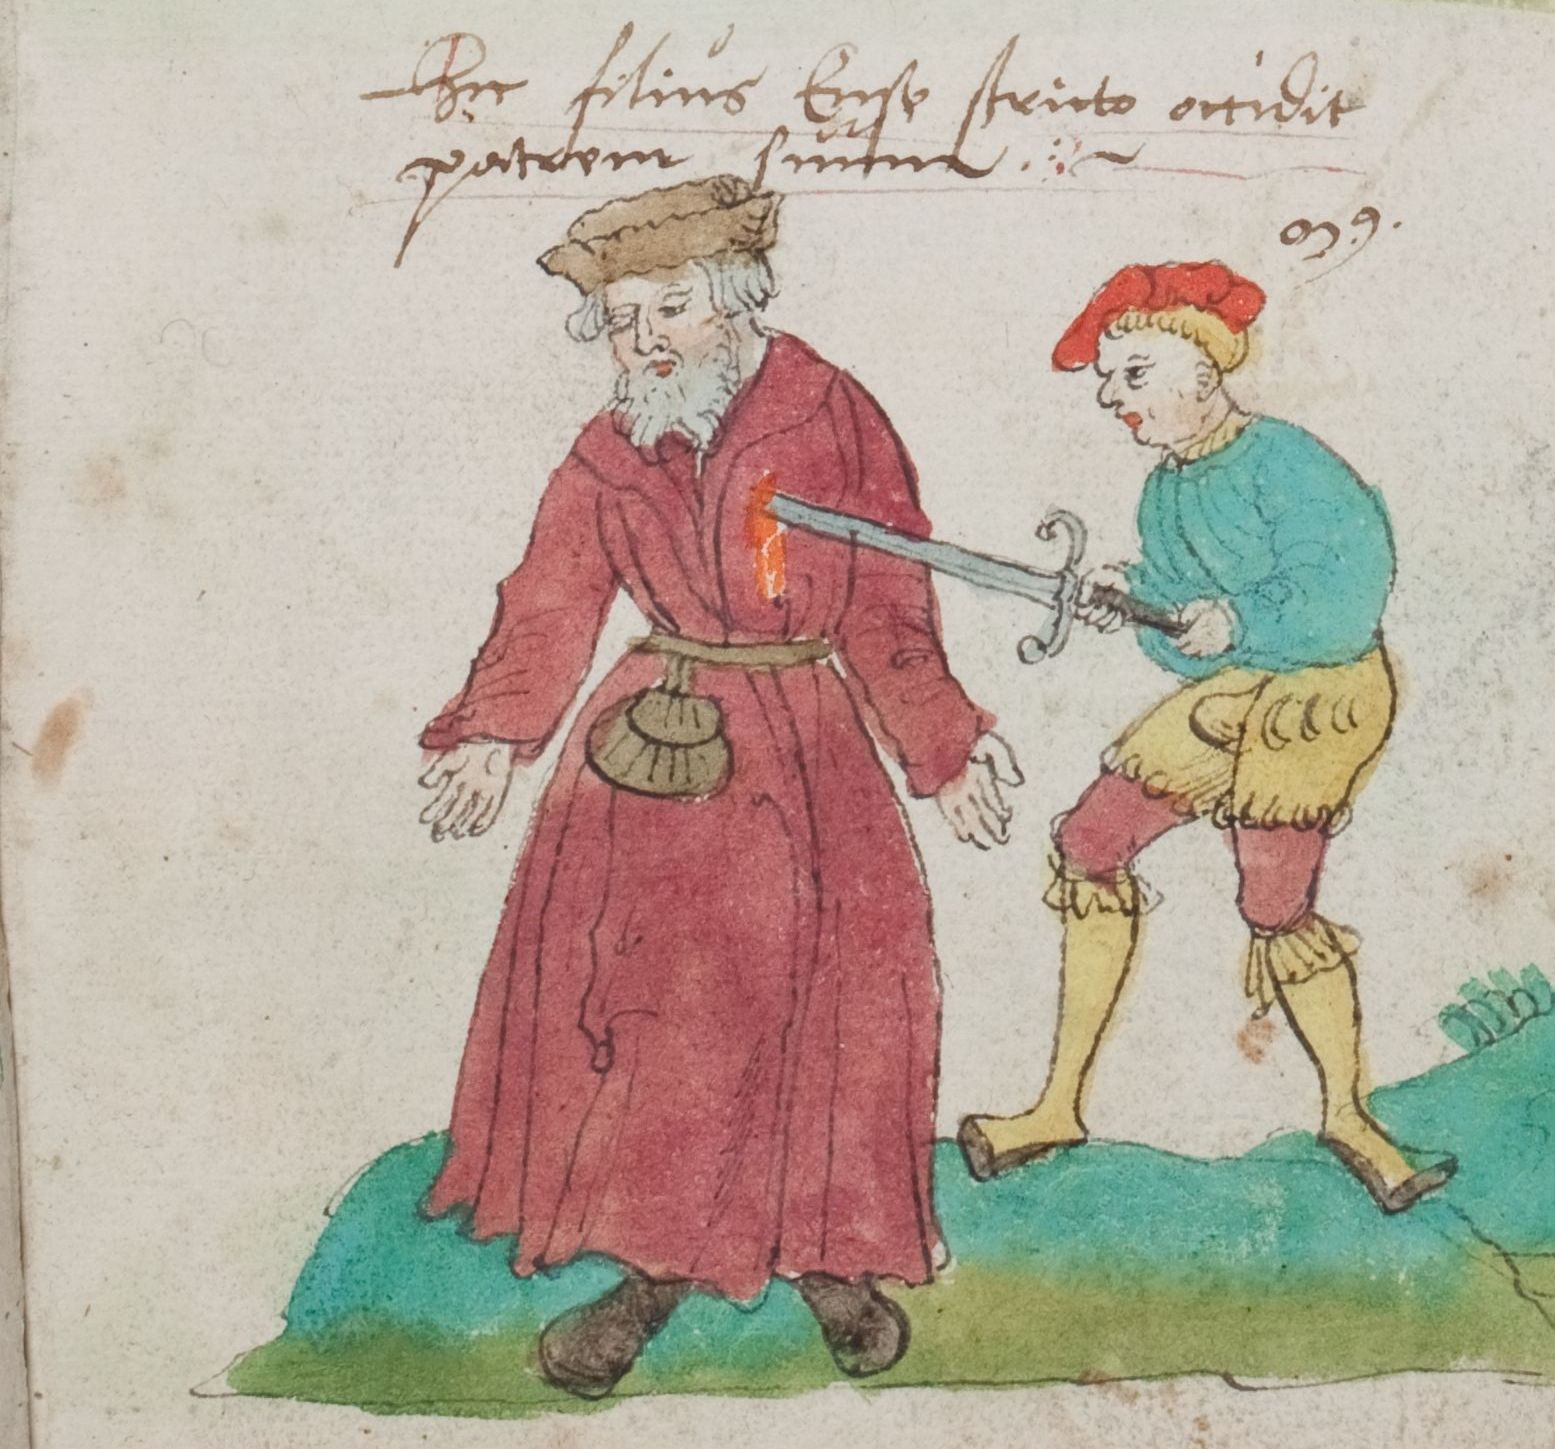 Hic filius Ense stricto occidit
patrem suum